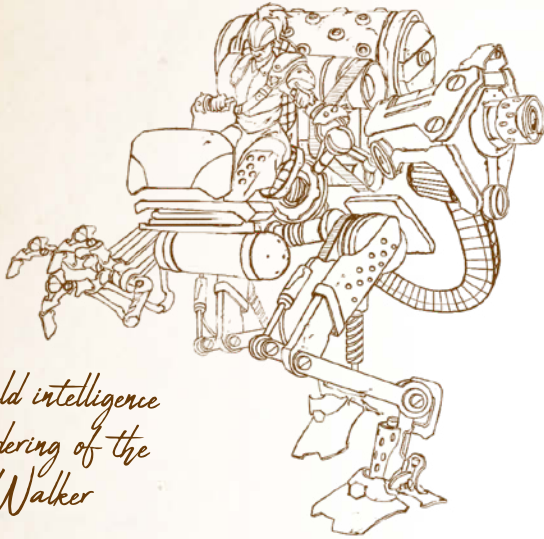 ld intelligence
dering of the
Walker